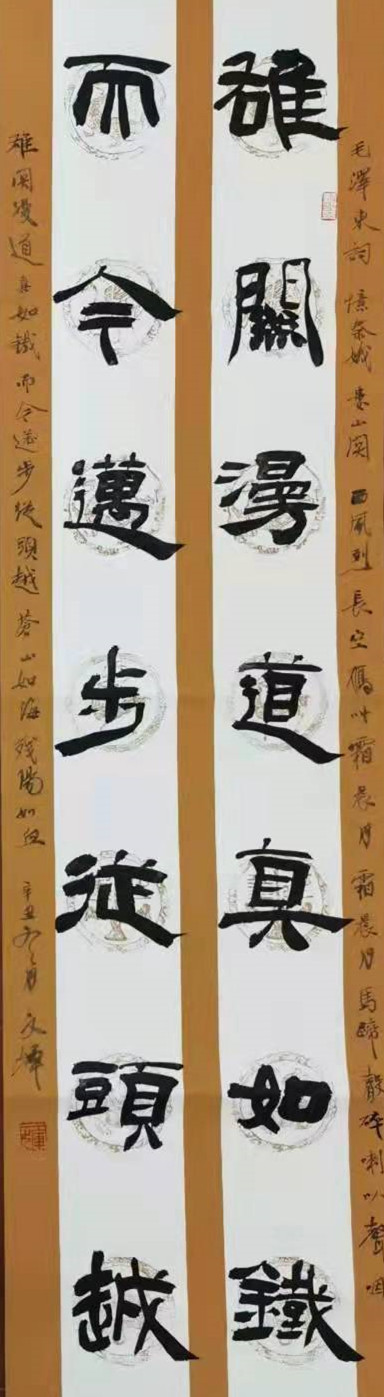 毛澤東詞 憶秦娥 婁山関 西風烈 長空雁叫霜晨月 霜晨月 馬蹄聲碎 喇叭聲咽
雄關漫道真如鐵
而今邁步従頭越
雄関漫道真如鐵 而今邁步從頭越 蒼山如海 殘陽如血 辛丑 月 文